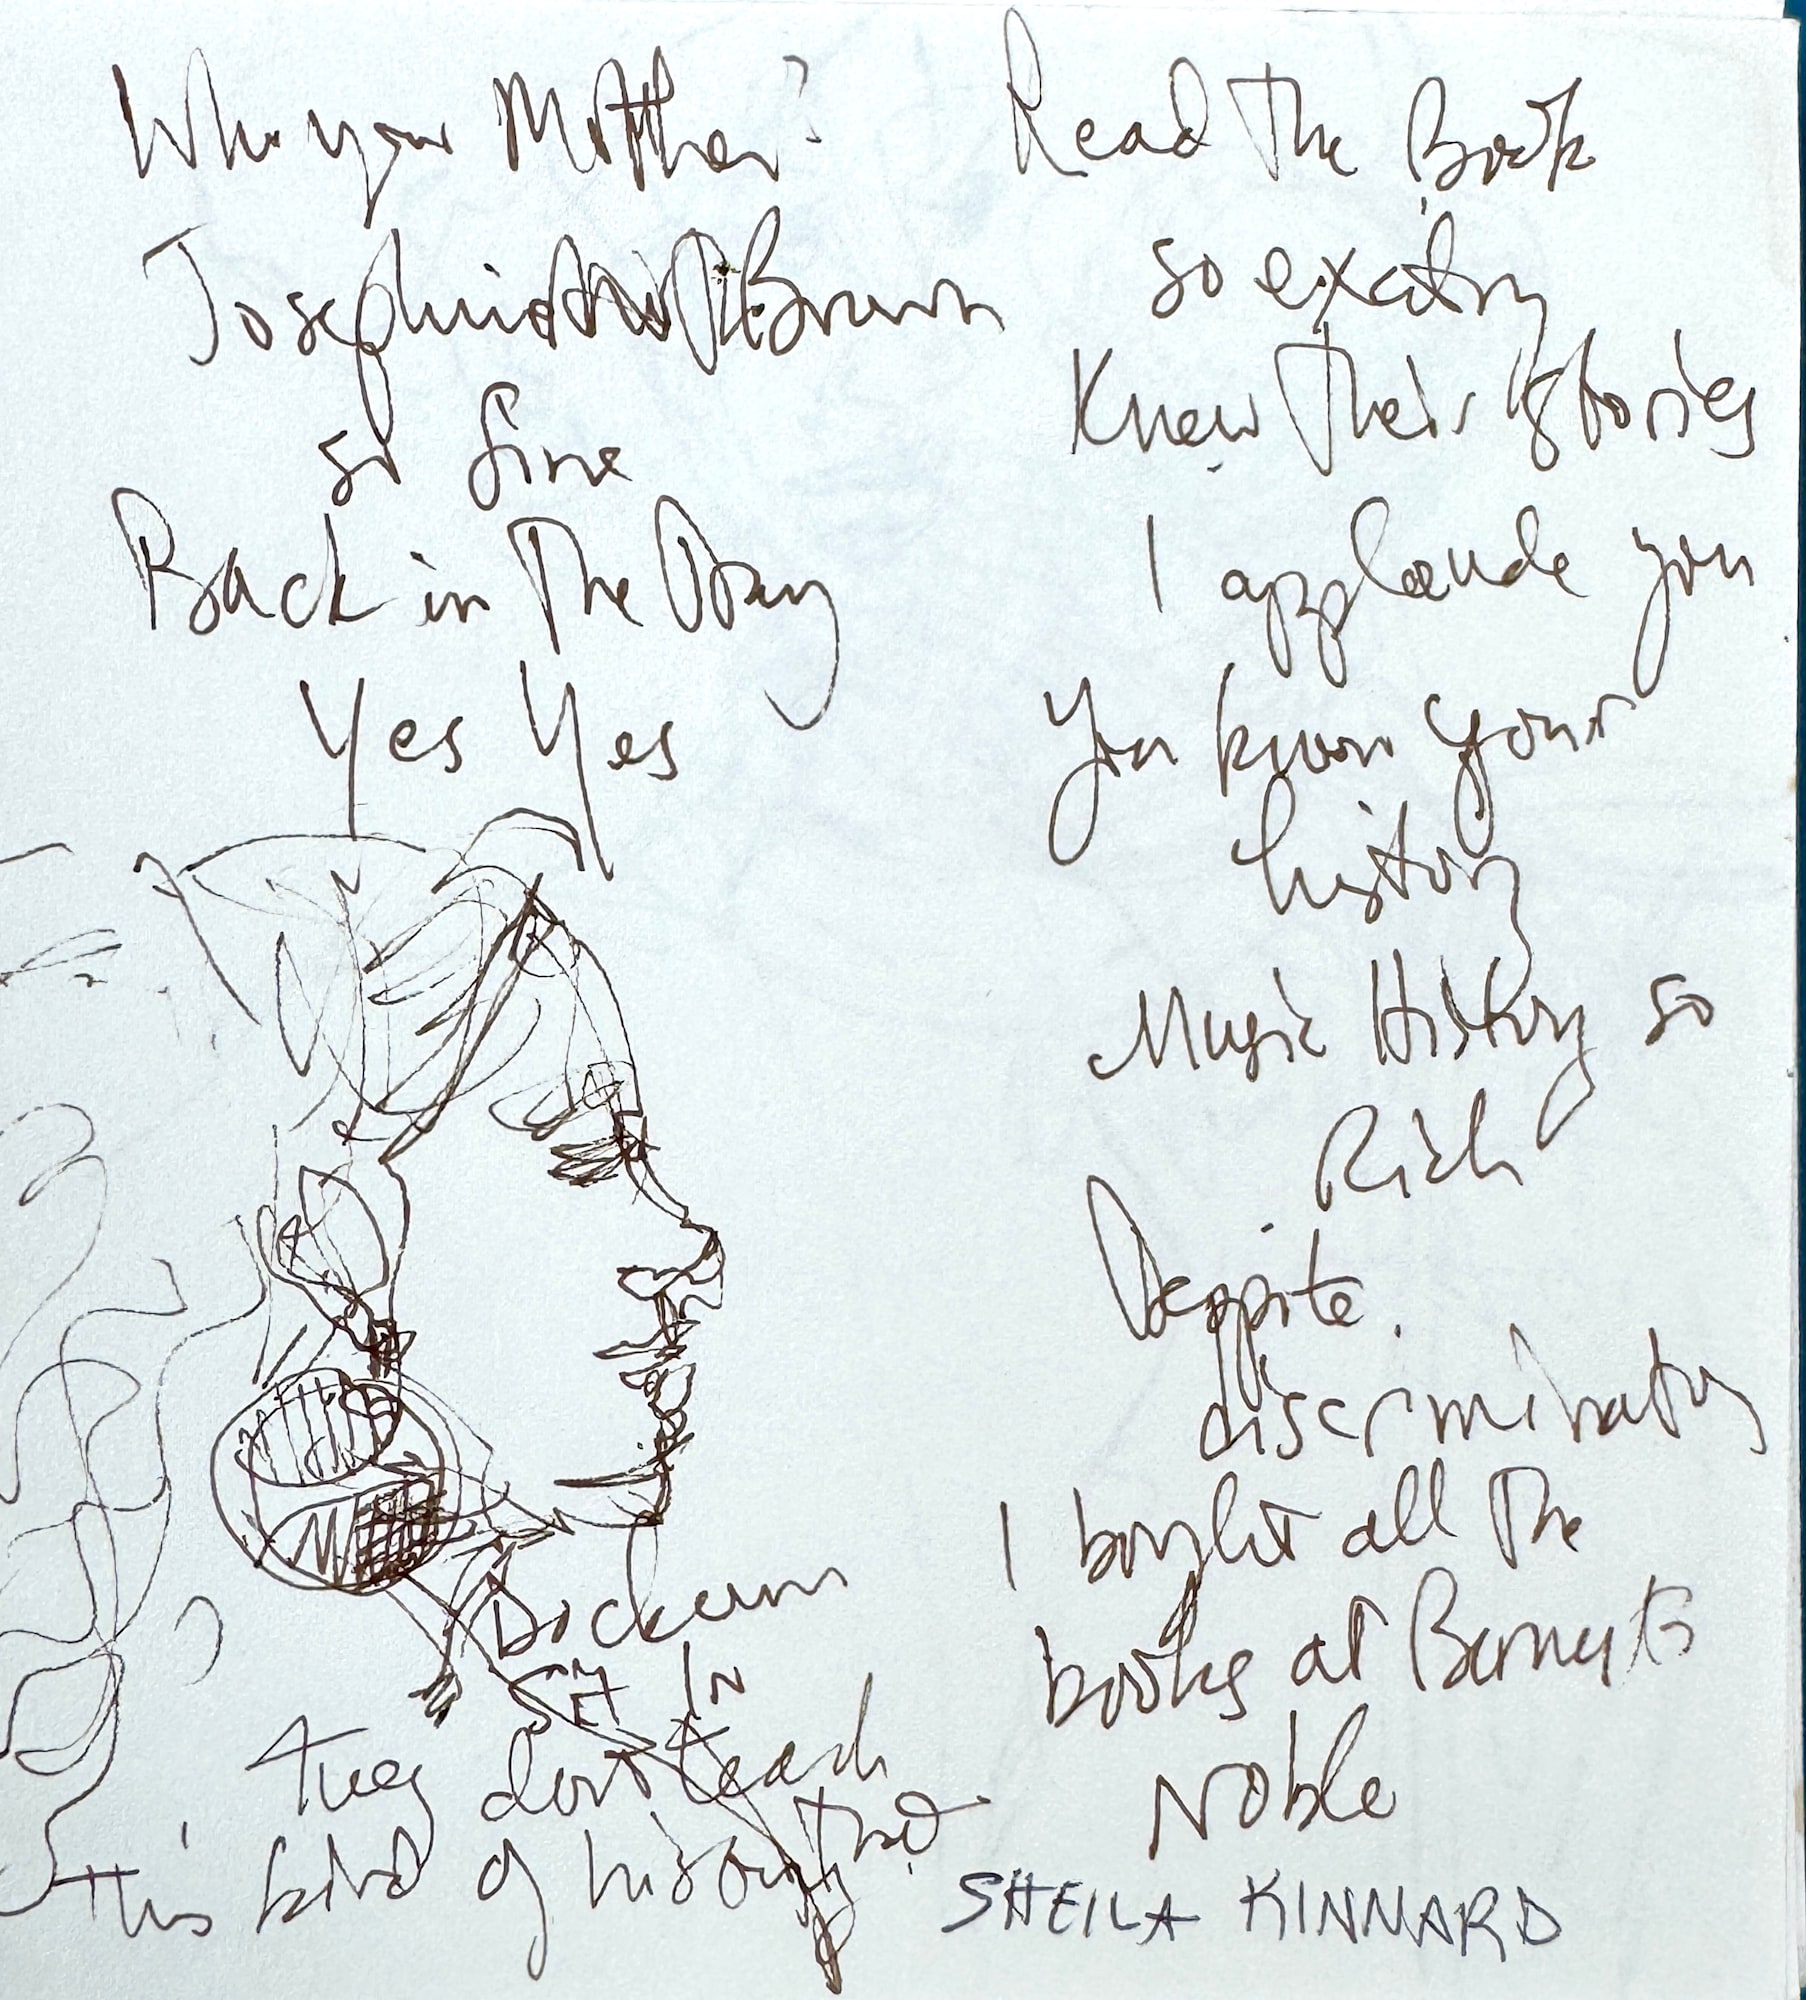 Who your Mother?
Josephine Brown
so fine
Back in The Day
Yes Yes
Dockum
Sit In
they dont teach
this kind of history
Read The Book
so exciting
Knew Their Stories
I applaude you
You know your
history
Music History so
Rich
Despite
discrimination
I bought all The
books at Barnes
Noble
SHEILA KINNARD